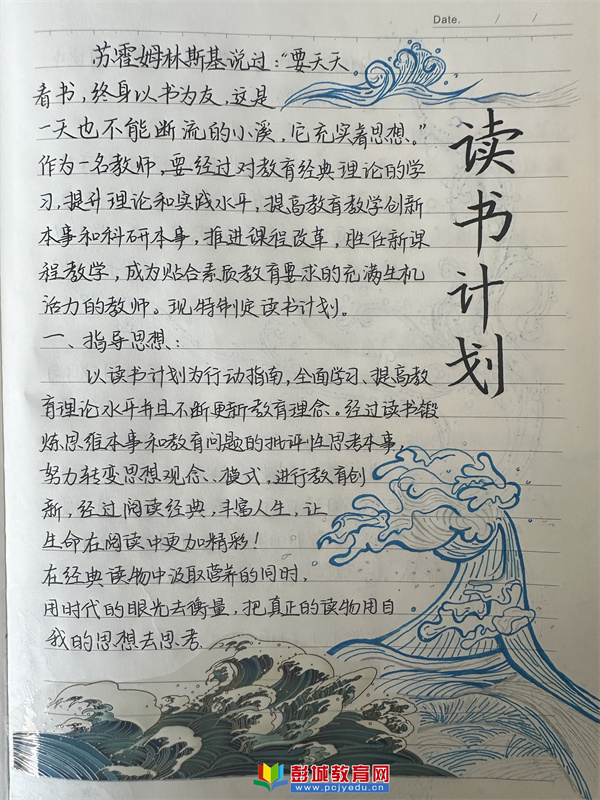 Date. / /
读书计划
苏霍姆林斯基说过:“要天天
看书,终身以书为友,这是
一天也不能断流的小溪,它充实着思想。”
作为一名教师,要经过对教育经典理论的学
习,提升理论和实践水平,提高教育教学创新
本事和科研本事,推进课程改革,胜任新课
程教学,成为贴合素质教育要求的充满生机
活力的教师。现特制定读书计划。
一、指导思想:
以读书计划为行动指南,全面学习、提高教
育理论水平并且不断更新教育理念。经过读书锻
炼思维本事和教育问题的批评性思考本事,
努力转变思想观念、模式,进行教育创
新,经过阅读经典,丰富人生,让
生命在阅读中更加精彩!
在经典读物中汲取营养的同时,
用时代的眼光去衡量,把真正的读物用自
我的思想去思考.
彭城教育网
www.pcjyedu.cn